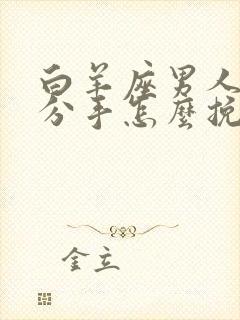 白羊座男人
分手怎麼挽
金立